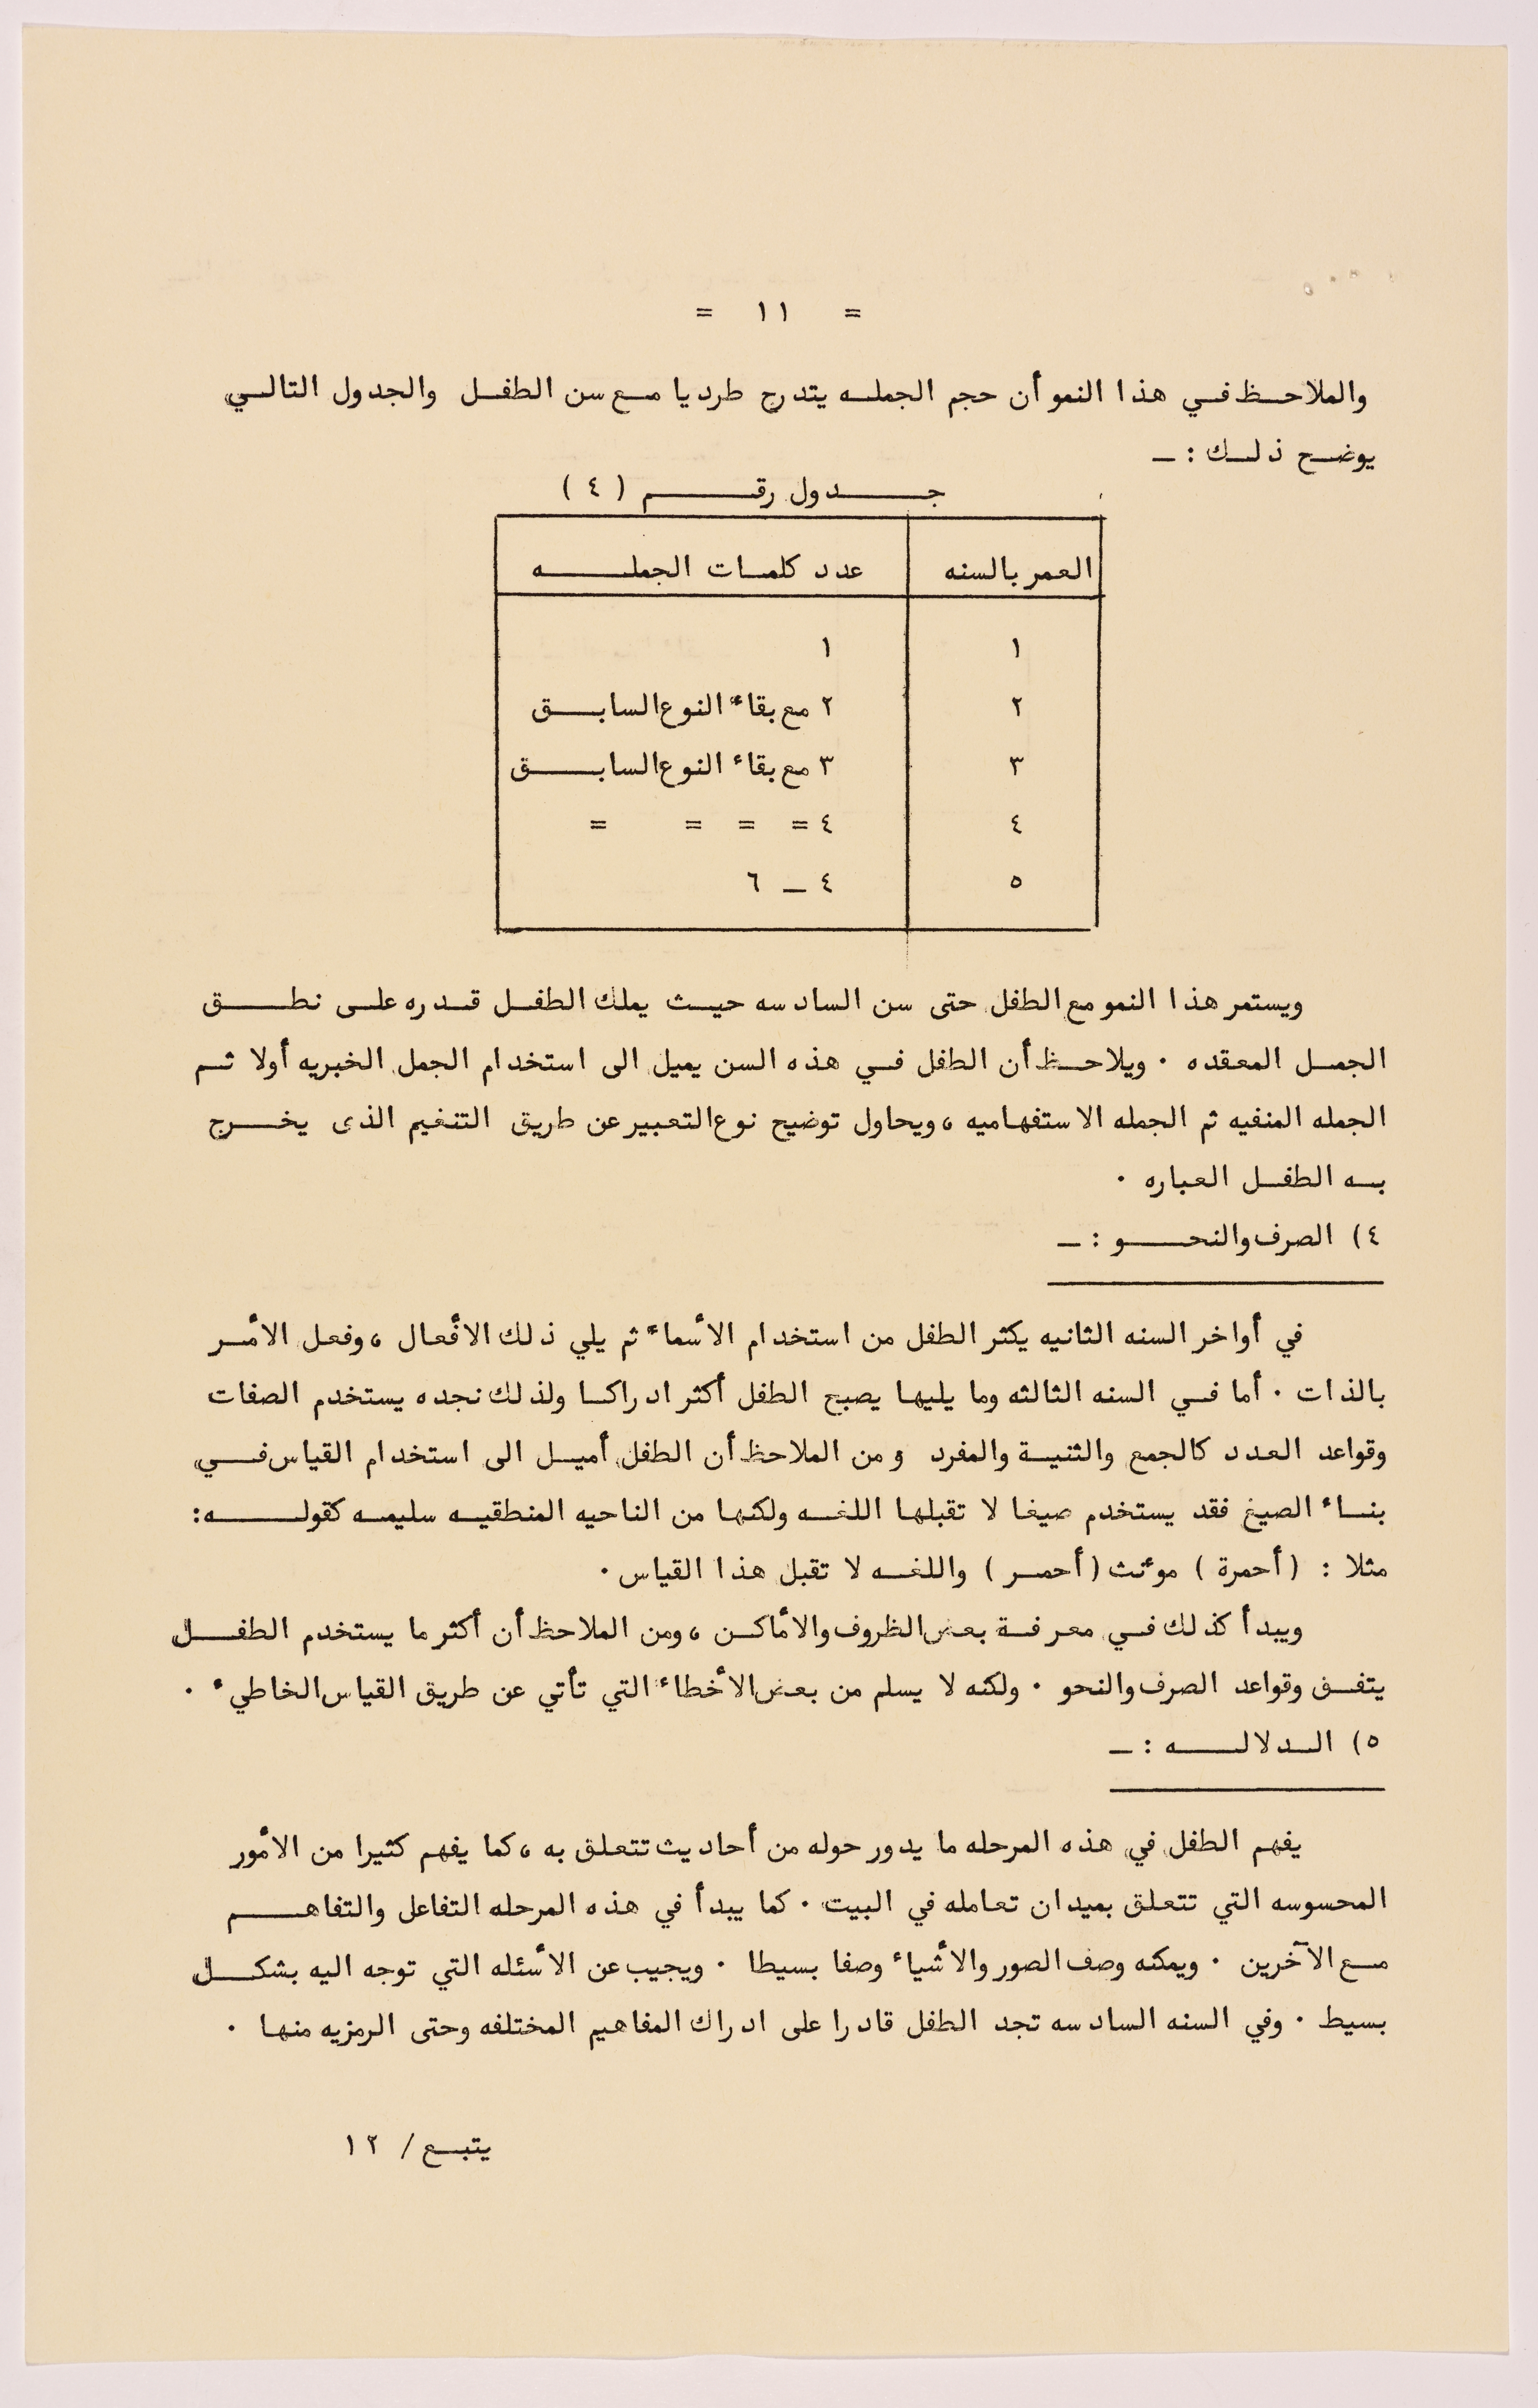 = ١١ =
والملاحظ في هذا النمو أن حجم الجمله يتدرج طرديا مع سن الطفل والجدول التالي
يوضح ذلك : ـ
جدول رقم ( ٤ )
العمر بالسنه عدد كلمات الجمله
١ ١
٢ ٢ مع بقاء النوع السابق
٣ ٣ مع بقاء النوع السابق
٤ ٤ = = = =
٥ ٤ ــ ٦
ويستمر هذا النمو مع الطفل حتى سن السادسه حيث يملك الطفل قدره على نطق
الجمل المعقده ٠ ويلاحظ أن الطفل في هذه السن يميل الى استخدام الجمل الخبريه أولا ثم
الجمله المنفيه ثم الجمله الاستفهاميه ، ويحاول توضيح نوع التعبير عن طريق التنغيم الذى يخرج
به الطفل العباره ٠
٤) الصرف والنحو : ـ
في أواخر السنه الثانيه يكثر الطفل من استخدام الأسماء ثم يلي ذلك الأفعال ، وفعل الأمر
بالذات ٠ أما في السنه الثالثه وما يليها يصبح الطفل أكثر ادراكا ولذلك نجده يستخدم الصفات
وقواعد العدد كالجمع والثنية والمفرد ومن الملاحظ أن الطفل أميل الى استخدام القياس في
بناء الصيغ فقد يستخدم صيغا لا تقبلها اللغه ولكنها من الناحيه المنطقيه سليمه كقوله :
مثلا : (أحمرة ) موئث (أحمر ) واللغه لا تقبل هذا القياس ٠
ويبدأ كذلك في معرفة بعض الظروف والأماكن ، ومن الملاحظ أن أكثر ما يستخدم الطفل
يتفق وقواعد الصرف والنحو ٠ ولكنه لا يسلم من بعض الأخطاء التي تأتي عن طريق القياس الخاطيء ٠
٥) الدلاله : ـ
يفهم الطفل في هذه المرحله ما يدور حوله من أحاديث تتعلق به ، كما يفهم كثيرا من الأمور
المحسوسه التي تتعلق بميدان تعامله في البيت ٠ كما يبدأ في هذه المرحله التفاعل والتفاهم
مع الآخرين ٠ ويمكنه وصف الصور والأشياء وصفا بسيطا ٠ ويجيب عن الأسئله التي توجه اليه بشكل
بسيط ٠ وفي السنه السادسه تجد الطفل قادرا على ادراك المفاهيم المختلفه وحتى الرمزيه منها ٠
يتبع / ١٢